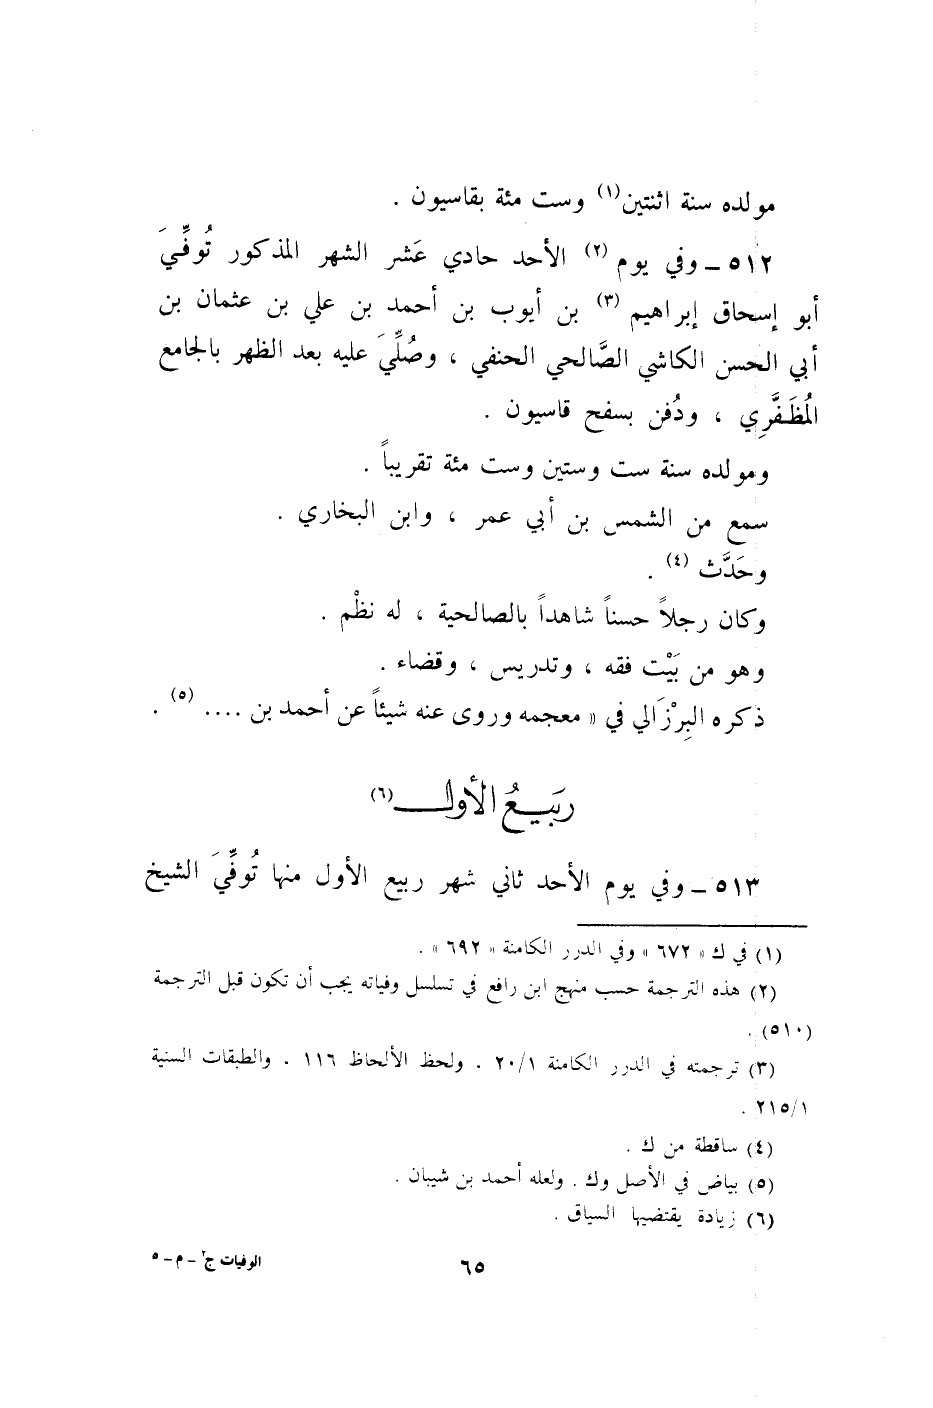 مولده سنة اثنتين(١) وست مئة بقاسيون .
٥١٢ ـ وفي يوم (٢) الأحد حادي عَشر الشهر المذكور تُوفِّيَ
أبو إسحاق إبراهيم (٣) بن أيوب بن أحمد بن علي بن عثمان بن
أبي الحسن الكاشي الصَّالحي الحنفي ، وصُلِّيَ عليه بعد الظهر بالجامع
المُظَفَّرِي ، ودُفن بسفح قاسيون .
ومولده سنة ست وستين وست مئة تقريباً .
سمع من الشمس بن أبي عمر ، وابن البخاري .
وحَدَّث (٤) .
وكان رجلاً حسناً شاهداً بالصالحية ، له نظْم .
وهو من بَيْت فقه ، وتدريس ، وقضاء .
ذكره البِرْزَالي في « معجمه وروى عنه شيئاً عن أحمد بن .... (٥) .
ربَيعُ الأول (٦)
٥١٣ ـ وفي يوم الأحد ثاني شهر ربيع الأول منها تُوفِّيَ الشيخ
(١) في ك « ٦٧٢ » وفي الدرر الكامنة « ٦٩٢ » .
(٢) هذه الترجمة حسب منهج ابن رافع في تسلسل وفياته يجب أن تكون قبل الترجمة
(٥١٠) .
(٣) ترجمته في الدرر الكامنة ٢٠/١ . ولحظ الألحاظ ١١٦ . والطبقات السنية
٢١٥/١ .
(٤) ساقطة من ك .
(٥) بياض في الأصل وك . ولعله أحمد بن شيبان .
(٦) زيادة يقتضيها السياق .
٦٥
الوفيات ج٢ - م - ٥